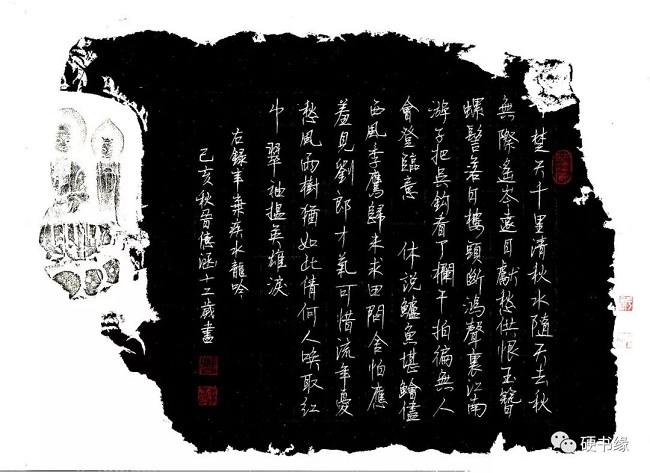 楚天千里清秋水隨天去秋
無際遙岑遠目獻愁供恨玉簪
螺髻落日樓頭斷鴻聲裏江南
游子把吳鉤看了欄干拍徧無人
會登臨意 休說鱸魚堪鱠儘
西風季鷹歸未求田問舍怕應
羞見劉郎才氣可惜流年憂
愁風雨樹猶如此倩何人喚取紅
巾翠袖搵英雄淚
右錄辛棄疾水龍吟
己亥秋億涵十二歲書
硬书缘